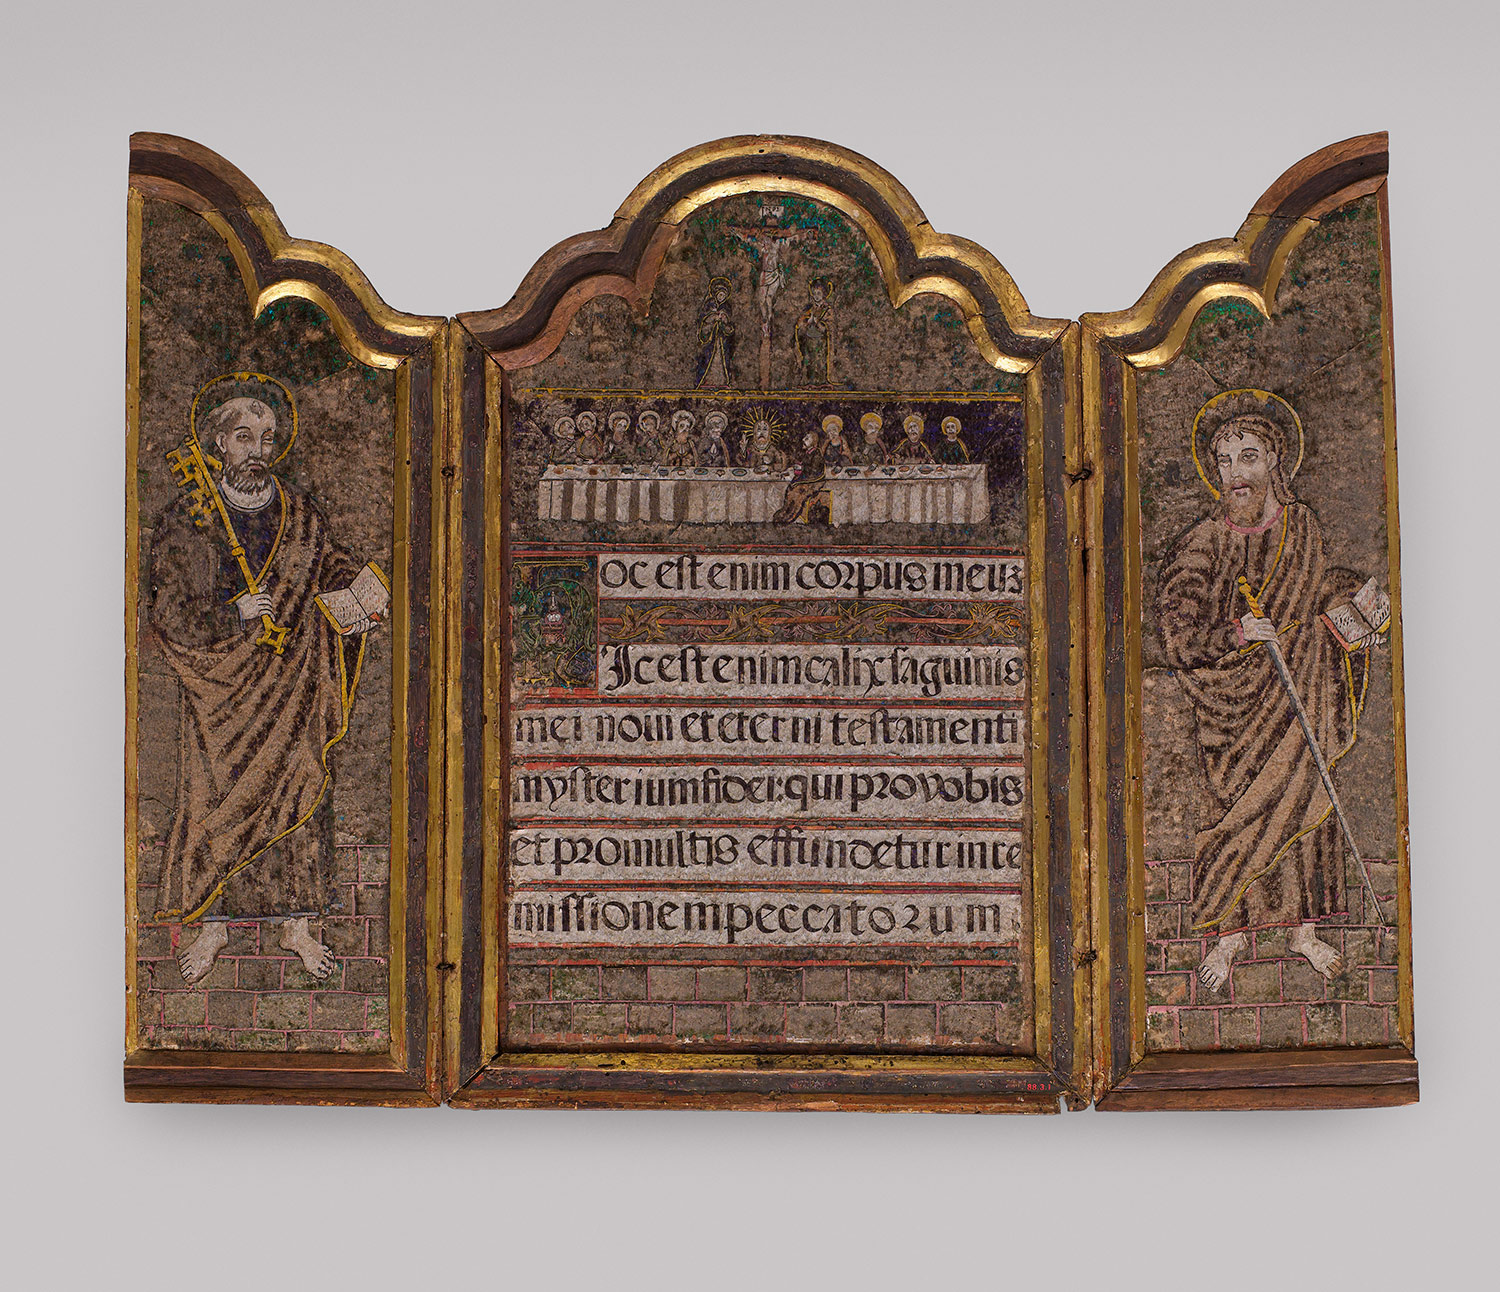 Hoc est enim corpus meuʒ
Hic est enim calix saguinis
mei noui et eterni testamenti
mysterium fidei: qui pro vobis
et pro multis effundetur in re
missionem peccatorum
88.3.1